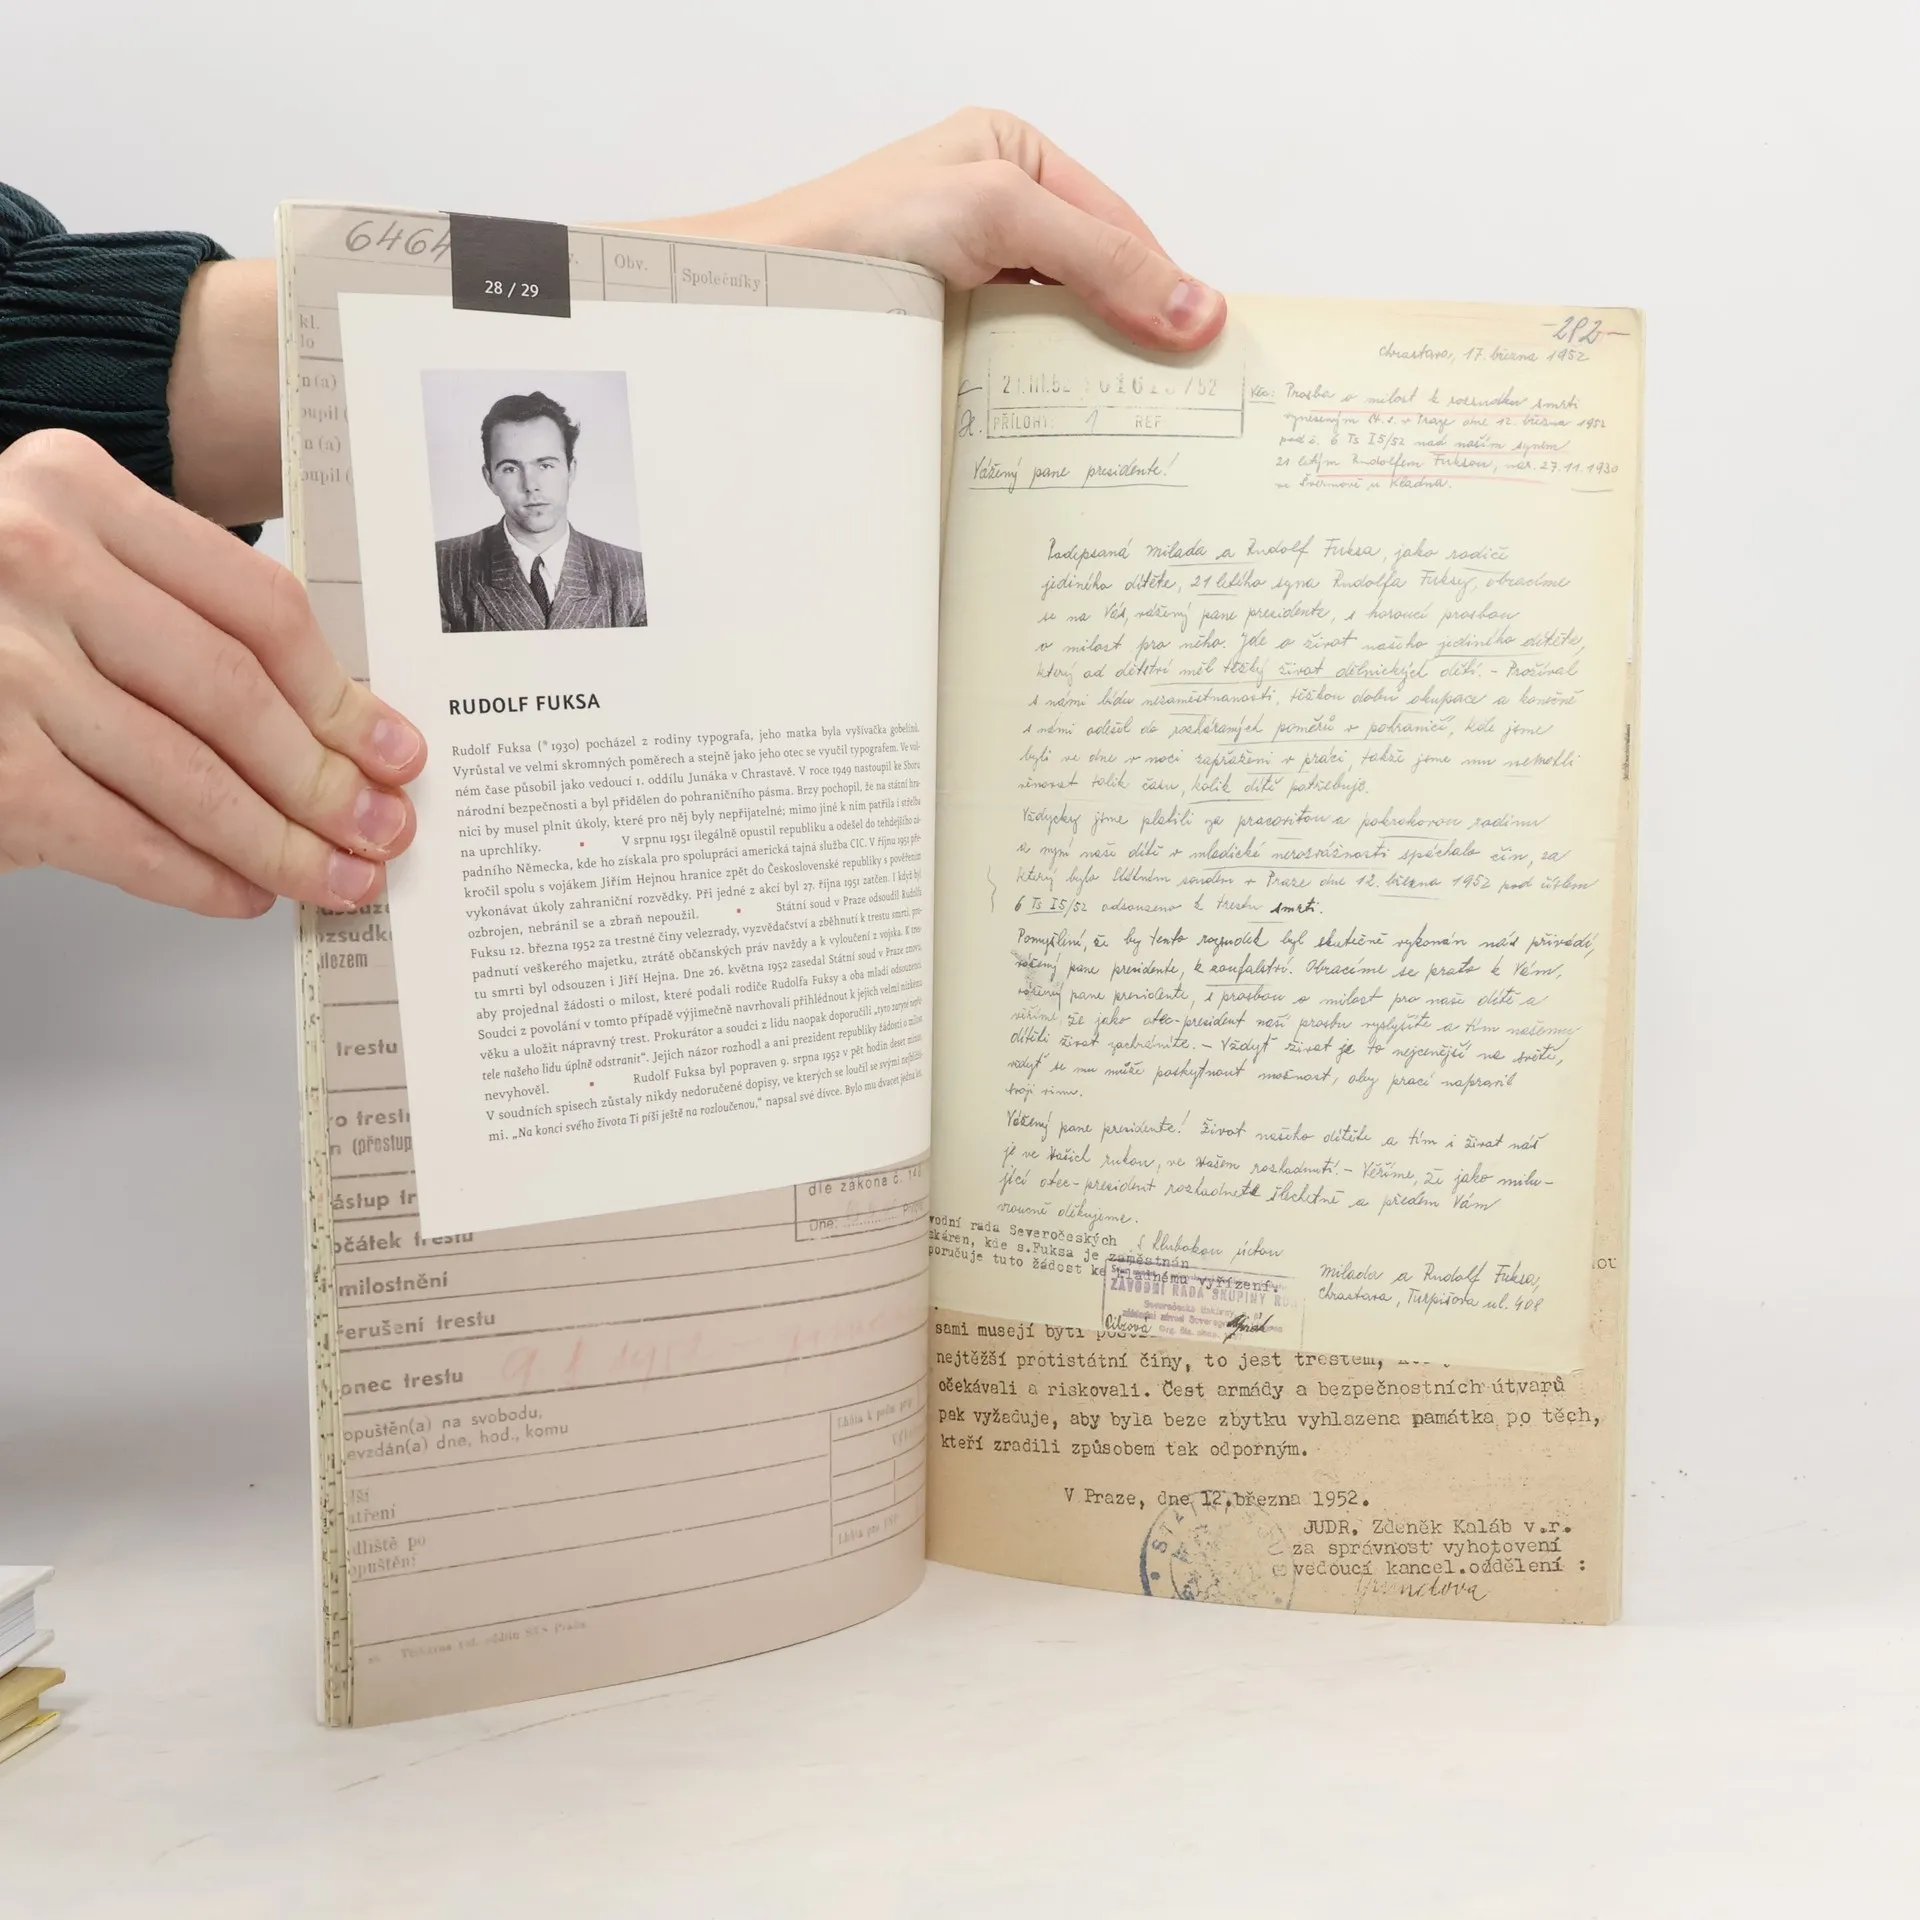 6464
Obv.
Společníky
28 / 29
RUDOLF FUKSA
Rudolf Fuksa (*1930) pocházel z rodiny typografa, jeho matka byla vyšívačka gobelínů.
Vyrůstal ve velmi skromných poměrech a stejně jako jeho otec se vyučil typografem. Ve vol-
ném čase působil jako vedoucí 1. oddílu Junáka v Chrastavě. V roce 1949 nastoupil ke Sboru
národní bezpečnosti a byl přidělen do pohraničního pásma. Brzy pochopil, že na státní hra-
nici by musel plnit úkoly, které pro něj byly nepřijatelné; mimo jiné k nim patřila i střelba
na uprchlíky. ▪ V srpnu 1951 ilegálně opustil republiku a odešel do tehdejšího zá-
padního Německa, kde ho získala pro spolupráci americká tajná služba CIC. V říjnu 1951 pře-
kročil spolu s vojákem Jiřím Hejnou hranice zpět do Československé republiky s pověřením
vykonávat úkoly zahraniční rozvědky. Při jedné z akcí byl 27. října 1951 zatčen. I když byl
ozbrojen, nebránil se a zbraň nepoužil. ▪ Státní soud v Praze odsoudil Rudolfa
Fuksu 12. března 1952 za trestné činy velezrady, vyzvědačství a zběhnutí k trestu smrti, pro-
padnutí veškerého majetku, ztrátě občanských práv navždy a k vyloučení z vojska. K tres-
tu smrti byl odsouzen i Jiří Hejna. Dne 26. května 1952 zasedal Státní soud v Praze znovu,
aby projednal žádosti o milost, které podali rodiče Rudolfa Fuksy a oba mladí odsouzení.
Soudci z povolání v tomto případě výjimečně navrhovali přihlédnout k jejich velmi nízkému
věku a uložit nápravný trest. Prokurátor a soudci z lidu naopak doporučili „tyto zaryté nepřá-
tele našeho lidu úplně odstranit“. Jejich názor rozhodl a ani prezident republiky žádosti o milost
nevyhověl. ▪ Rudolf Fuksa byl popraven 9. srpna 1952 v pět hodin deset minut.
V soudních spisech zůstaly nikdy nedoručené dopisy, ve kterých se loučil se svými nejbližší-
mi. „Na konci svého života Ti píši ještě na rozloučenou,“ napsal své dívce. Bylo mu dvacet jedna let.
dle zákona č.
Dne:
trestu
milostnění
řerušení trestu
onec trestu
opuštěn(a) na svobodu,
evzdán(a) dne, hod., komu
-292-
Chrastava, 17. března 1952
21.III.52
PŘÍLOHY: 1 REF
Věc: Prosba o milost k rozsudku smrti
vyneseným St. s. v Praze dne 12. března 1952
pod č. 6 Ts I 5/52 nad naším synem
21 letým Rudolfem Fuksou, nar. 27.11.1930
ve Švermově u Kladna.
Vážený pane presidente!
Podepsaná Milada a Rudolf Fuksa, jako rodiče
jediného dítěte, 21 letého syna Rudolfa Fuksy, obracíme
se na Vás, vážený pane presidente, s horoucí prosbou
o milost pro něho. Jde o život našeho jediného dítěte,
který od dětství měl těžký život dělnických dětí. - Prožíval
s námi bídu nezaměstnanosti, těžkou dobu okupace a konečně
s námi odešel do rozháraných poměrů v pohraničí, kde jsme
byli ve dne v noci zapřaženi v práci, takže jsme mu nemohli
věnovat tolik času, kolik dítě potřebuje.
Vždycky jsme platili za pracovitou a pokrokovou rodinu
a nyní naše dítě v mladické nerozvážnosti spáchalo čin, za
který bylo Státním soudem v Praze dne 12. března 1952 pod číslem
6 Ts I5/52 odsouzeno k trestu smrti.
Pomyšlení, že by tento rozsudek byl skutečně vykonán nás přivádí,
vážený pane presidente, k zoufalství. Obracíme se proto k Vám,
vážený pane presidente, s prosbou o milost pro naše dítě a
věříme, že jako otec-president naší prosbu vyslyšíte a tím našemu
dítěti život zachráníte. - Vždyť život je to nejcennější na světě,
vždyť se mu může poskytnout možnost, aby prací napravil
svoji vinu.
Vážený pane presidente! Život našeho dítěte a tím i život náš
je ve Vašich rukou, ve Vašem rozhodnutí. - Věříme, že jako milu-
jící otec-president rozhodnete šlechetně a předem Vám
vroucně děkujeme.
S hlubokou úctou
vodní rada Severočeských
skáren, kde s.Fuksa je zaměstnán
poručuje tuto žádost ke kladnému vyřízení.
ZÁVODNÍ RADA SKUPINY
Milada a Rudolf Fuksa,
Chrastava, Turpišova ul. 408
sami musejí býti
nejtěžší protistátní činy, to jest trestem,
očekávali a riskovali. Čest armády a bezpečnostních útvarů
pak vyžaduje, aby byla beze zbytku vyhlazena památka po těch,
kteří zradili způsobem tak odporným.
V Praze, dne 12.března 1952.
JUDR. Zdeněk Kaláb v.r.
za správnost vyhotovení
vedoucí kancel.oddělení :